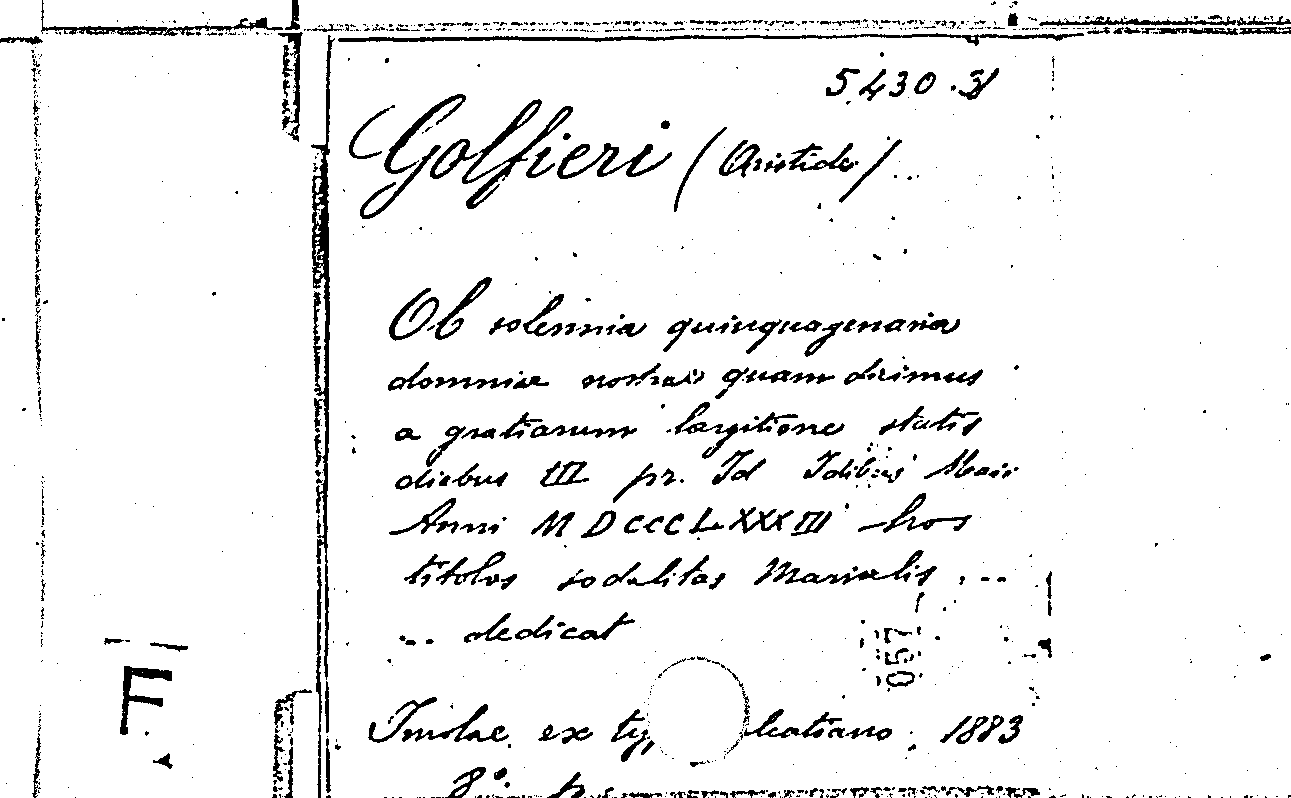 5430.31
Golfieri (Aristide)
Ob solemnia quinquagenaria
domniae nostrae quam dicimus
a gratiarum largitione statis
diebus III pr. Id Idibus Maii
Anni MDCCCLXXXIII hos
titolos sodalitas Marialis ...
... dedicat
057
F
Imolae ex ty 1883
8°.